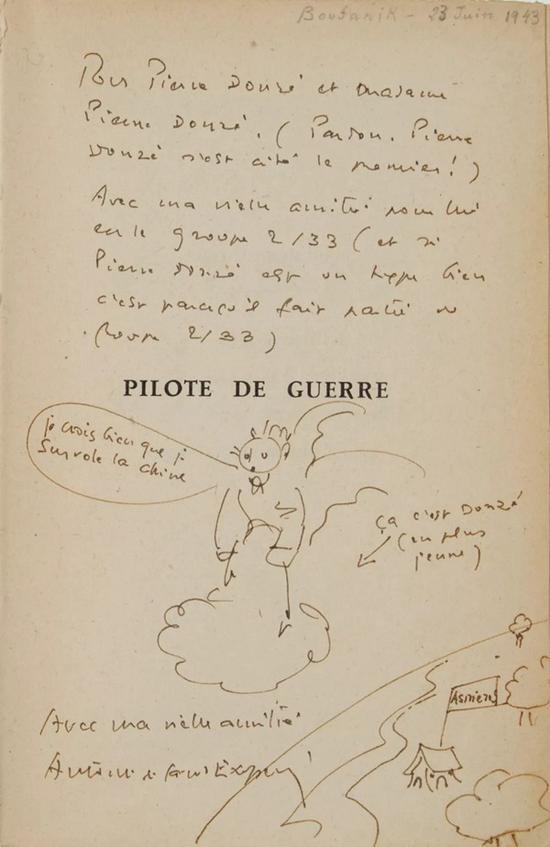 Boufarik - 23 Juin 1943
Pour Pierre Donzé et madame
Pierre Donzé. (Pardon. Pierre
Donzé s'est cité le premier!)
Avec ma vieille amitié pour lui
et le groupe 2/33 (et si
Pierre Donzé est un type bien
c'est parce qu'il fait partie du
Groupe 2/33)
PILOTE DE GUERRE
je crois bien que je
survole la Chine
ça c'est Donzé
(en plus
jeune)
Asnieres
Avec ma vieille amitié
Antoine de Saint Exupéry